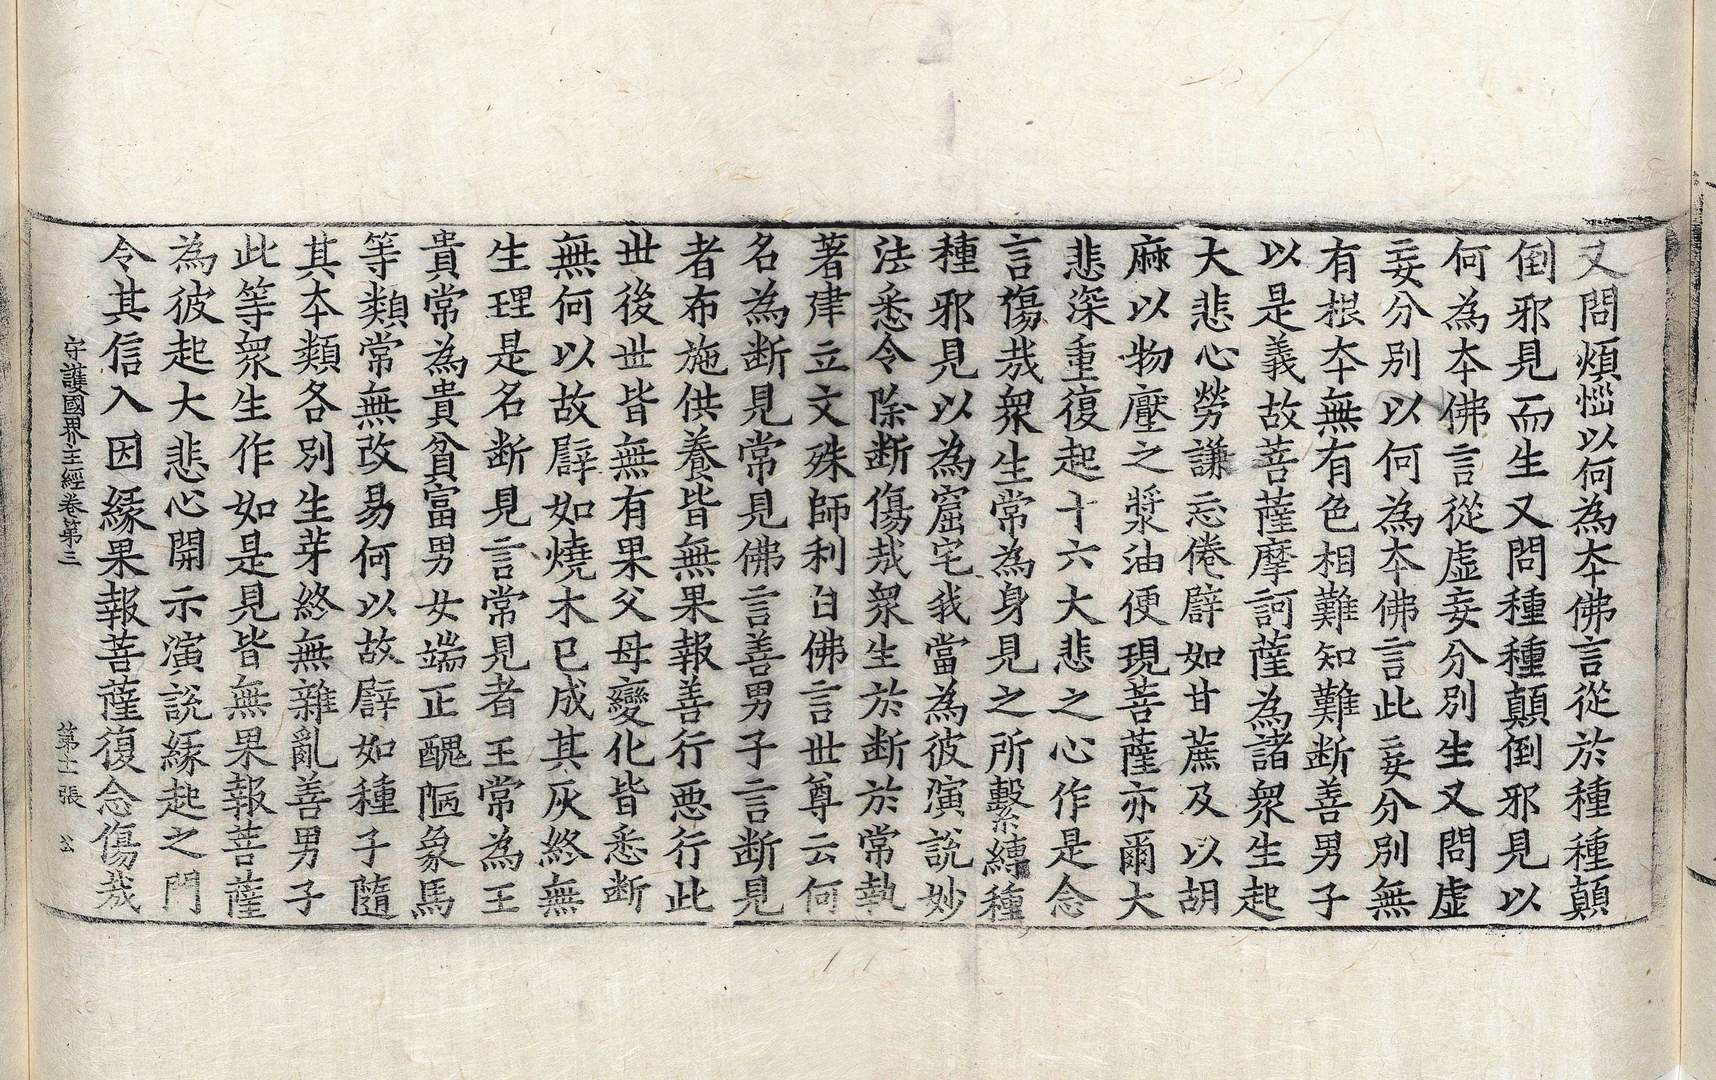 又問煩惱以何為本佛言從於種種顛
倒邪見而生又問種種顛倒邪見以
何為本佛言從虛妄分別生又問虛
妄分別以何為本佛言此妄分別無
有根本無有色相難知難断善男子
以是義故菩薩摩訶薩為諸衆生起
大悲心勞謙忘倦譬如甘蔗及以胡
麻以物壓之漿油便現菩薩亦爾大
悲深重復起十六大悲之心作是念
言傷㦲衆生常為身見之所繫縛種
種邪見以為窟宅我當為彼演說妙
法悉令除断傷㦲衆生於断於常執
著建立文殊師利白佛言世尊云何
名為断見常見佛言善男子言断見
者布施供養皆無果報善行悪行此
世後世皆無有果父母變化皆悉断
無何以故譬如燒木已成其灰終無
生理是名断見言常見者王常為王
貴常為貴貧富男女端正醜陋象馬
等類常無改易何以故譬如種子隨
其本類各別生芽終無雜亂善男子
此等衆生作如是見皆無果報菩薩
為彼起大悲心開示演説緣起之門
令其信入因緣果報菩薩復念傷㦲
守護國界主經卷第三 第十一張 公